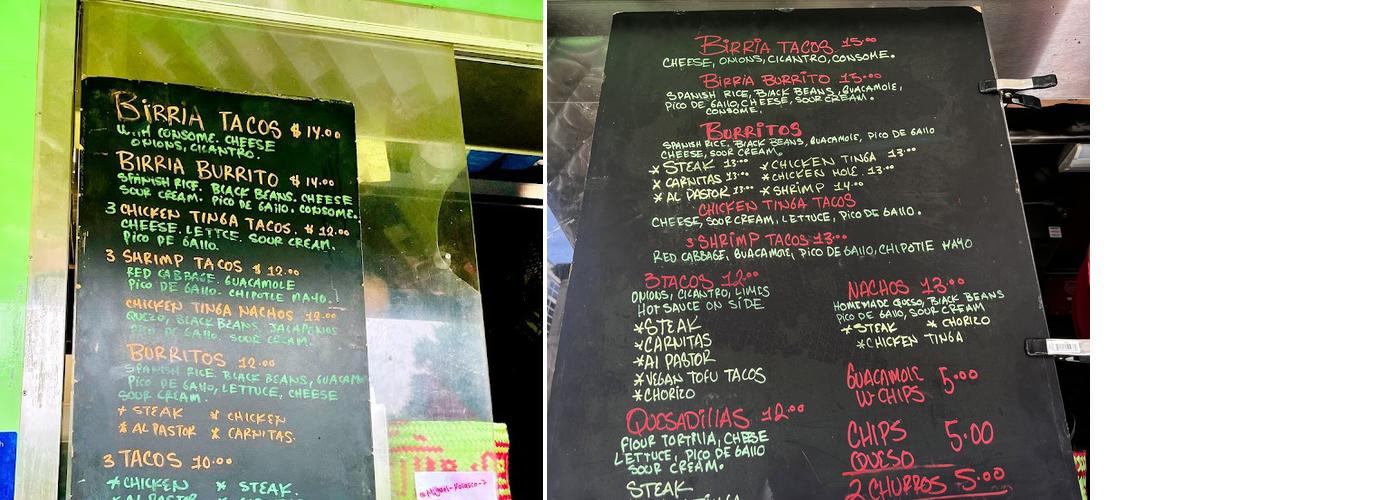 BIRRIA TACOS $14.00
WITH CONSOME. CHEESE
ONIONS, CILANTRO.
BIRRIA BURRITO $14.00
SPANISH RICE. BLACK BEANS. CHEESE
SOUR CREAM. PICO DE GAllO. CONSOME.
3 CHICKEN TINGA TACOS. $12.00
CHEESE. LETTCE. SOUR CREAM.
PICO DE GAllO.
3 SHRIMP TACOS $12.00
RED CABBAGE. GUACAMOLE
PICO DE GAllO. CHIPOTLE MAYO.
CHICKEN TINGA NACHOS 12.00
QUEZO, BLACK BEANS. JALAPENOS
PICO DE GAllO, SOUR CREAM.
BURRITOS 12.00
SPANISH RICE, BLACK BEANS, GUACAMO
PICO DE GAllO, LETTUCE, CHEESE
SOUR CREAM.
* STEAK * CHICKEN
* AL PASTOR * CARNITAS.
3 TACOS 10.00
* CHICKEN * STEAK.
* AL PASTOR
BIRRIA TACOS 15.00
CHEESE, ONIONS, CILANTRO, CONSOME.
BIRRIA BURRITO 15.00
SPANISH RICE, BLACK BEANS, GUACAMOLE,
PICO DE GAllO, CHEESE, SOUR CREAM.
CONSOME.
BURRITOS
SPANISH RICE, BLACK BEANS, GUACAMOLE, PICO DE GAllO
CHEESE, SOUR CREAM.
* STEAK 13.00 * CHICKEN TINGA 13.00
* CARNITAS 13.00 * CHICKEN MOLE 13.00
* AL PASTOR 13.00 * SHRIMP 14.00
CHICKEN TINGA TACOS
CHEESE, SOUR CREAM, LETTUCE, PICO DE GAllO.
3 SHRIMP TACOS 13.00
RED CABBAGE, GUACAMOLE, PICO DE GAllO, CHIPOTlE MAYO
3 TACOS 12.00
ONIONS, CILANTRO, LIMES
HOT SAUCE ON SIDE
* STEAK
* CARNITAS
* Al PASTOR
* VEGAN TOFU TACOS
* CHORIZO
QUESADIllAS 12.00
FlOUR TORTIllA, CHEESE
LETTUCE, PICO DE GAllO
SOUR CREAM.
STEAK
NACHOS 13.00
HOMEMADE QUESO, BLACK BEANS
PICO DE GAllO, SOUR CREAM
* STEAK * CHORIZO
* CHICKEN TINGA
GUACAMOlE 5.00
W- CHIPS
CHIPS 5.00
QUESO
2 CHURROS 5.00